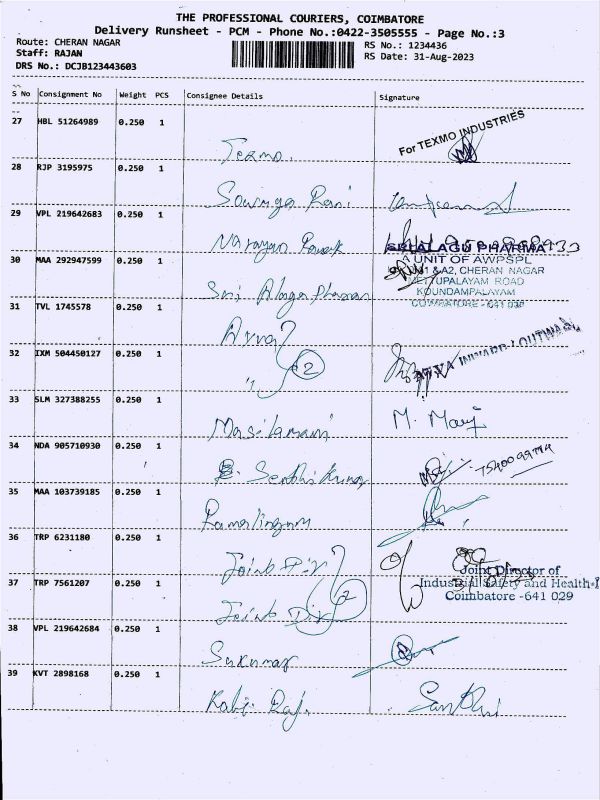 THE PROFESSIONAL COURIERS, COIMBATORE
Delivery Runsheet - PCM - Phone No.:0422-3505555 - Page No.:3
Route: CHERAN NAGAR
Staff: RAJAN
DRS No.: DCJB123443603
RS No.: 1234436
RS Date: 31-Aug-2023
S No Consignment No Weight PCS Consignee Details Signature
27 HBL 51264989 0.250 1 Texmo. For TEXMO INDUSTRIES
28 RJP 3195975 0.250 1 Rani
29 VPL 219642683 0.250 1 Narayan
30 MAA 292947599 0.250 1 Sri Alagu Pharma SRI ALAGU PHARMA
A UNIT OF AWPSPL
& A2, CHERAN NAGAR
METTUPALAYAM ROAD
KOUNDAMPALAYAM
COIMBATORE - 641 030
31 TVL 1745578 0.250 1
32 IXM 504450127 0.250 1 " 2 INWARD / OUTWARD
33 SLM 327388255 0.250 1 Masilamani M. Mary
34 NDA 905710930 0.250 1 Senthil Kumar
35 MAA 103739185 0.250 1 Ramalingam
36 TRP 6231180 0.250 1 Joint Dir
37 TRP 7561207 0.250 1 Joint Dir 2 Joint Director of
Industrial Safety and Health-I
Coimbatore -641 029
38 VPL 219642684 0.250 1 Sukumar
39 KVT 2898168 0.250 1 Kabi Raj. Santhi